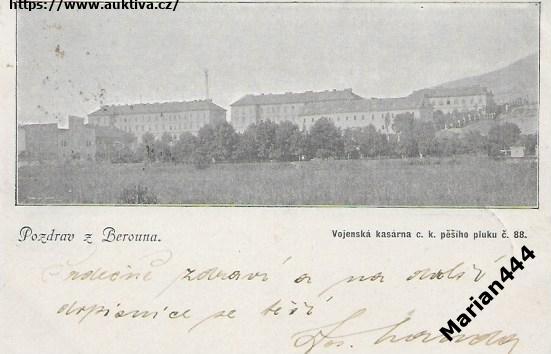 https://www.auktiva.cz/
Pozdrav z Berouna.
Vojenská kasárna c. k. pěšího pluku č. 88.
Srdečně zdraví a na další
dopisnice se těší
Marian444